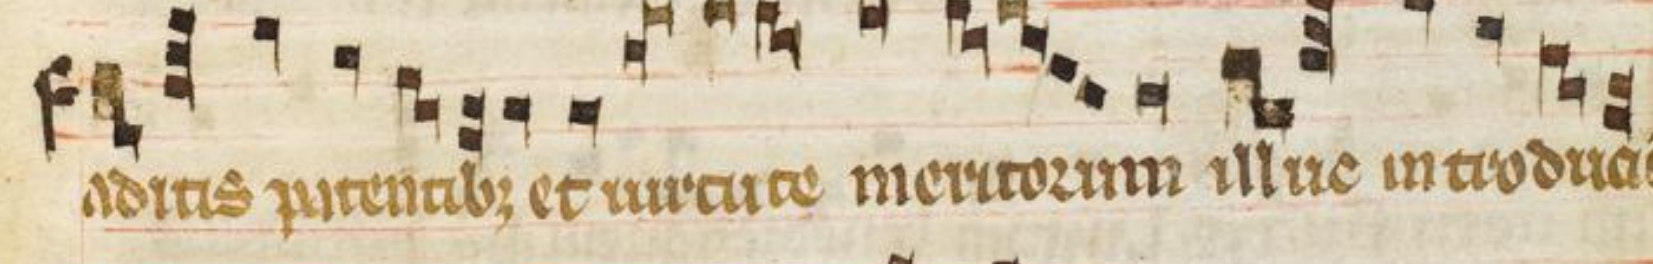 aditis patentibꝫ et uirtute meritorum illuc introduci